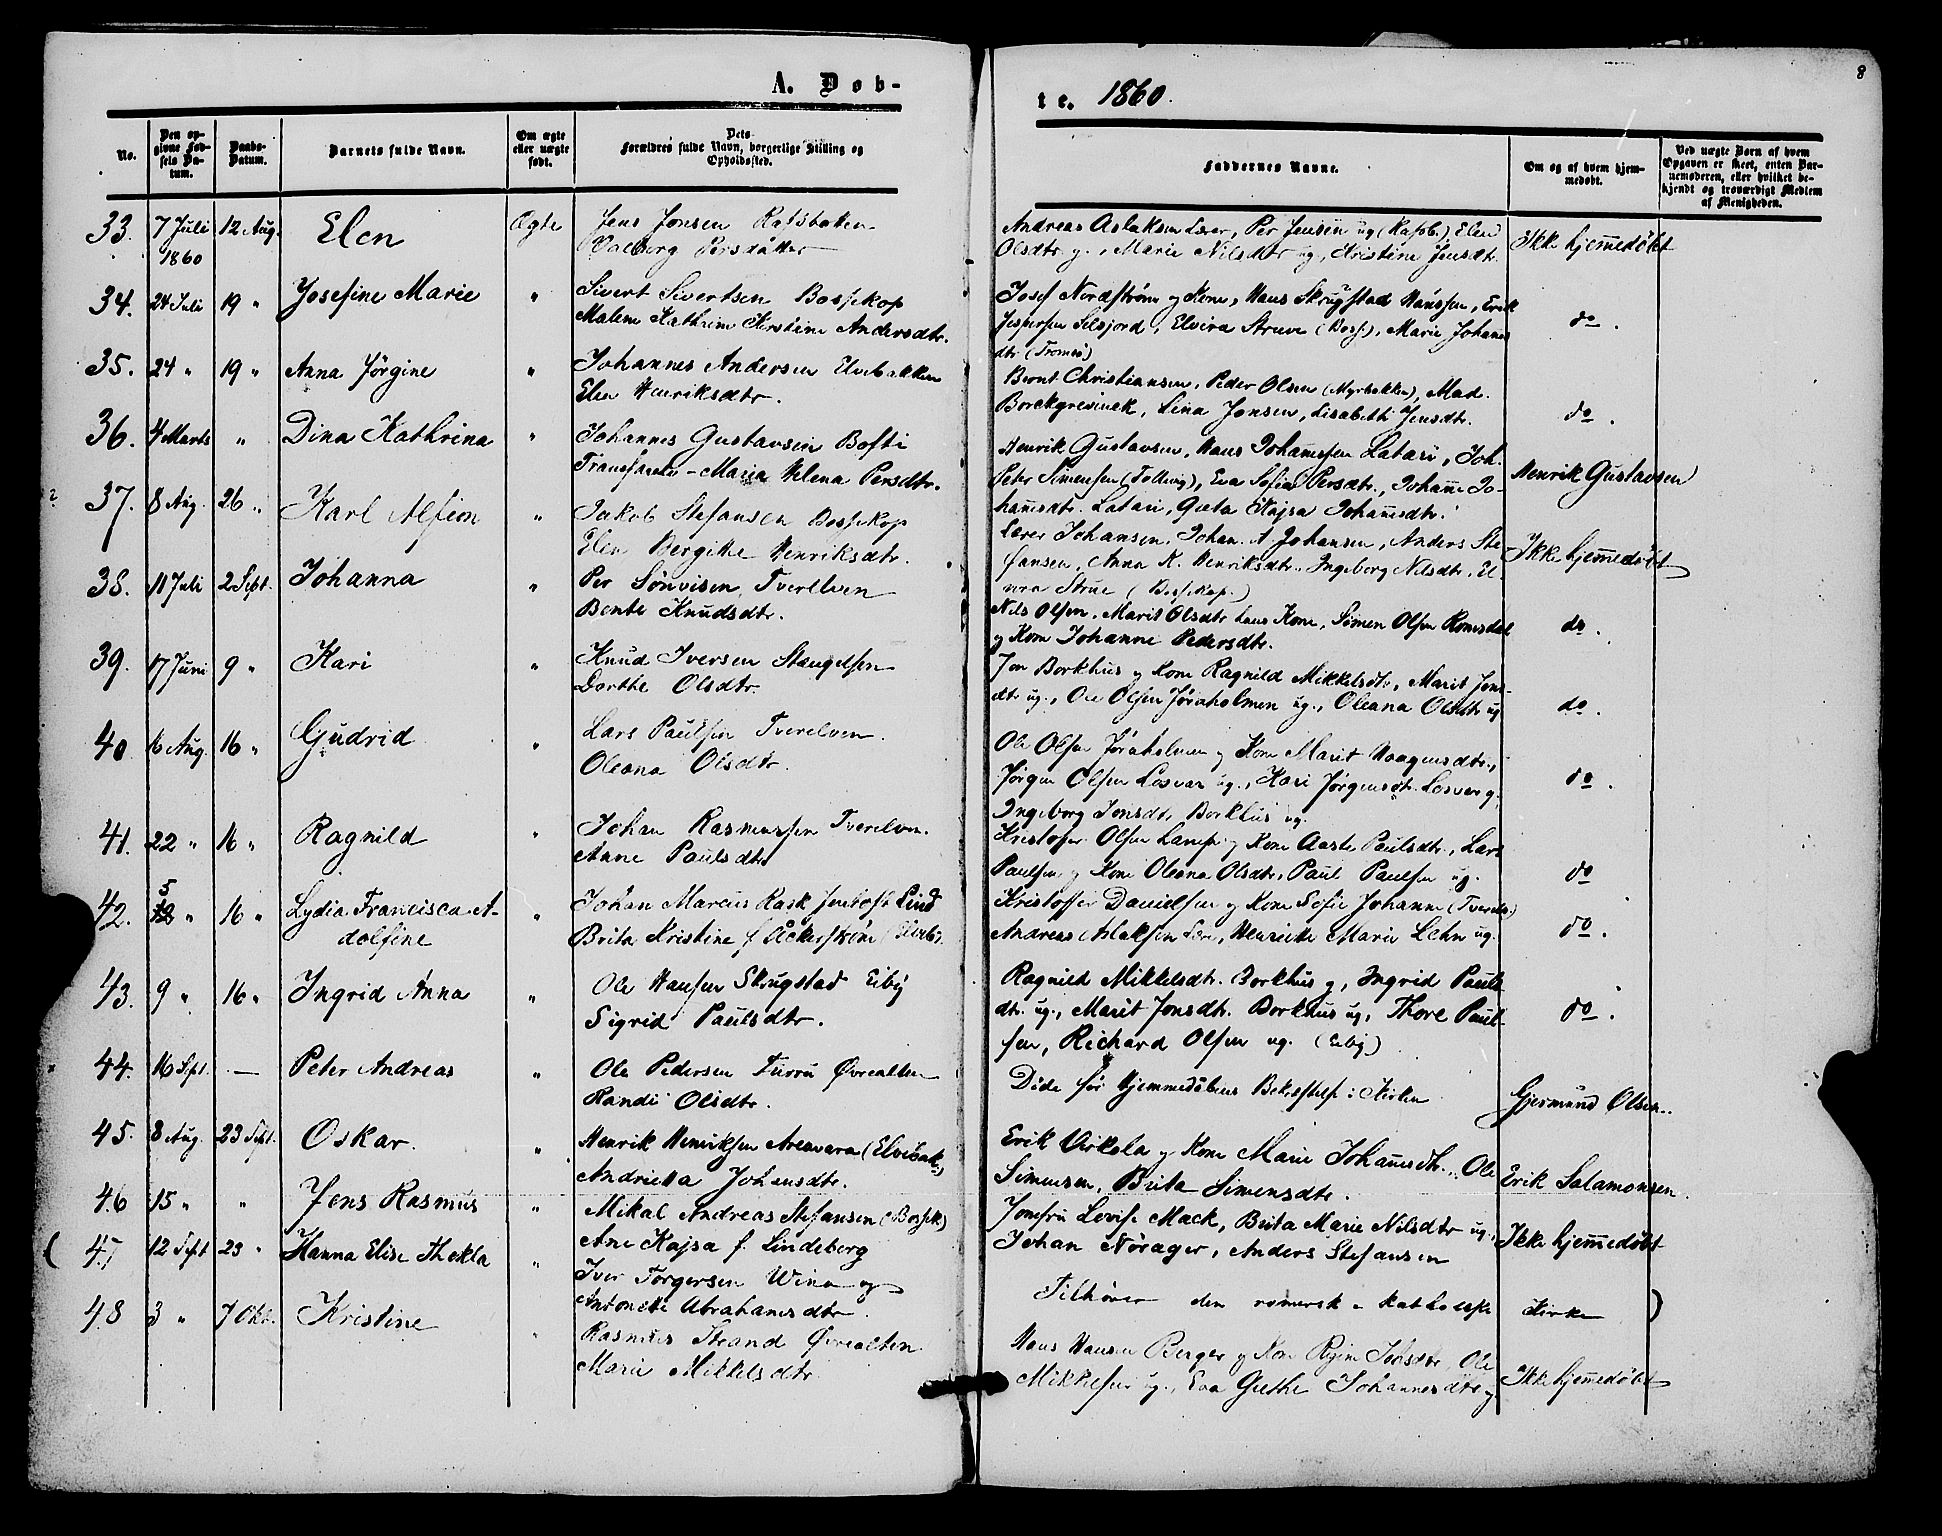 A. Døb-
te. 1860.
8
No.
Den opgivne Fødsels Datum.
Daabs-Datum.
Barnets fulde Navn.
Om ægte eller uægte født.
Dets Forældres fulde Navn, borgerlige Stilling og Opholdssted.
Faddernes Navne.
Om og af hvem hjemmedøbt.
Ved uægte Børn af hvem Opgaven er skeet, enten Barnemoderen, eller hvilket bekjendt og troværdigt Medlem af Menigheden.
33. 7 Juli 1860 12 Aug. Elen Ægte Jens Jonsen Rafsbotten
Persdatter
Andreas Aslaksen Lærer, Per Jensen ug (Rafsb.) Elen
Olsdtr g., Marie Nilsdtr ug, Kristine Jensdtr.
Ikke hjemmedøbt
34. 24 Juli 19 " Josefine Marie " Sivert Sivertsen Bossekop
Malene Kathrine Kirstine Andersdtr.
Josef Nordstrøm og Kone, Hans Skrugstad Hansen, Erik
Jespersen Selsjord, Elvira Struve (Boss.), Marie Johannes
dtr (Tromsø)
do.
35. 24 " 19 " Anna Jørgine " Johannes Andersen Elvebakken
Elen Henriksdtr.
Bernt Christiansen, Peder Olsen (Myrbakken), Mad.
Borckgrevinck, Lina Jonsen, Lisabeth Jensdtr.
do.
36. 4 Marts " Dina Kathrina " Johannes Gustavsen Bosti
Maria Helena Persdtr.
Henrik Gustavsen, Hans Johannssen Latari, Joh.
Peter Simensen (Tollevig), Eva Sofia Persdtr., Johanne Jo-
hannsdtr. Latari, Greta Kajsa Johannsdtr.
Henrik Gustavsen
37. 8 Aug. 26 " Karl Alfion " Jakob Stefansen Bossekop
Elen Bergitte Henriksdtr.
Lærer Johansen, Johan A Johansen, Anders Ste-
fansen, Anna K. Henriksdtr. Ingeborg Nilsdtr, El-
vira Strue (Bossekop.)
Ikke hjemmedøbt
38. 11 Juli 2 Sept. Johanna " Per Sønvisen Tverelven
Bente Knudsdtr.
Nils Olsen, Marit Olsdtr hans Kone, Simen Olsen Romsdal
og Kone Johanne Pedersdtr.
do.
39. 17 Juni 9 " Kari " Knud Iversen Stengelsen
Dorthe Olsdtr.
Jon Borkhus og Kone Ragnild Mikkelsdtr, Marit Jons-
dtr ug., Ole Olsen Jøraholmen ug., Oleana Olsdtr ug
do.
40. 6 Aug. 16 " Gudrid " Lars Paulsen Tverelven.
Oleana Olsdtr.
Ole Olsen Jøraholmen og Kone Marit Haagensdtr.,
Jørgen Olsen Losvar ug., Kari Jørgensdtr. Losvar g.
Ingeborg Jonsdtr Borkhus ug.
do.
41. 22 " 16 " Ragnild " Johan Rasmussen Tverelven.
Anne Paulsdtr
Kristofer Olsen og Kone Aaste Paulsdtr., Lars
Paulsen og Kone Oleana Olsdtr, Paul Paulsen ug.
do
42. 5 " 16 " Lydia Francisca A-
dolfine
" Johan Marcus Rask Lind
Brita Kristine f Åckerstrøm
Kristoffer Danielsen og Kone Sofie Johanne (Tverelv.)
Andreas Aslaksen Lærer, Henriette Marie Lehn ug.
do.
43. 9 " 16 " Ingrid Anna " Ole Hansen Skrugstad Eiby
Sigrid Paulsdtr.
Ragnild Mikkelsdtr. Borkhus g, Ingrid Pauls-
dtr. ug., Marit Jonsdtr. Borkhus ug, Thore Paul-
sen, Richard Olsen ug. (Eiby)
do.
44. 16 Sept. — Peter Andreas " Ole Pedersen Furru Øvrealten
Randi Olsdtr.
Døde før Hjemmedøbens Bekræftelse i Kirken
Gjermund Olsen.
45. 8 Aug. 23 Sept. Oskar. " Henrik Henriksen Areavara (Elvebak.)
Andriette Johansdtr.
Erik Virkola og Kone Marie Johannsdtr., Ole
Simensen, Brita Simensdtr.
Erik Salamonsen.
46 15 " " Jens Rasmus " Mikal Andreas Stefansen (Bossek)
Ane Kajsa f. Lindeberg
Jomfru Lovise Mack, Brita Marie Nilsdtr ug.,
Johan Nørager, Anders Stefansen
Ikke hjemmedøbt
( 47 12 Sept 23 " Hanna Elise Thekla " Iver Torgersen Wina og
Antonette Abrahamsdtr.
Tilhører den romersk-katholske Kirke )
48 3 " 7 Okt. Kristine " Rasmus Strand Øvrealten
Marie Mikkelsdtr.
Hans Hansen Berger og Kone Regine Johsdtr, Ole
Mikkelsen ug., Eva Grethe Johannesdtr g
Ikke hjemmedøbt